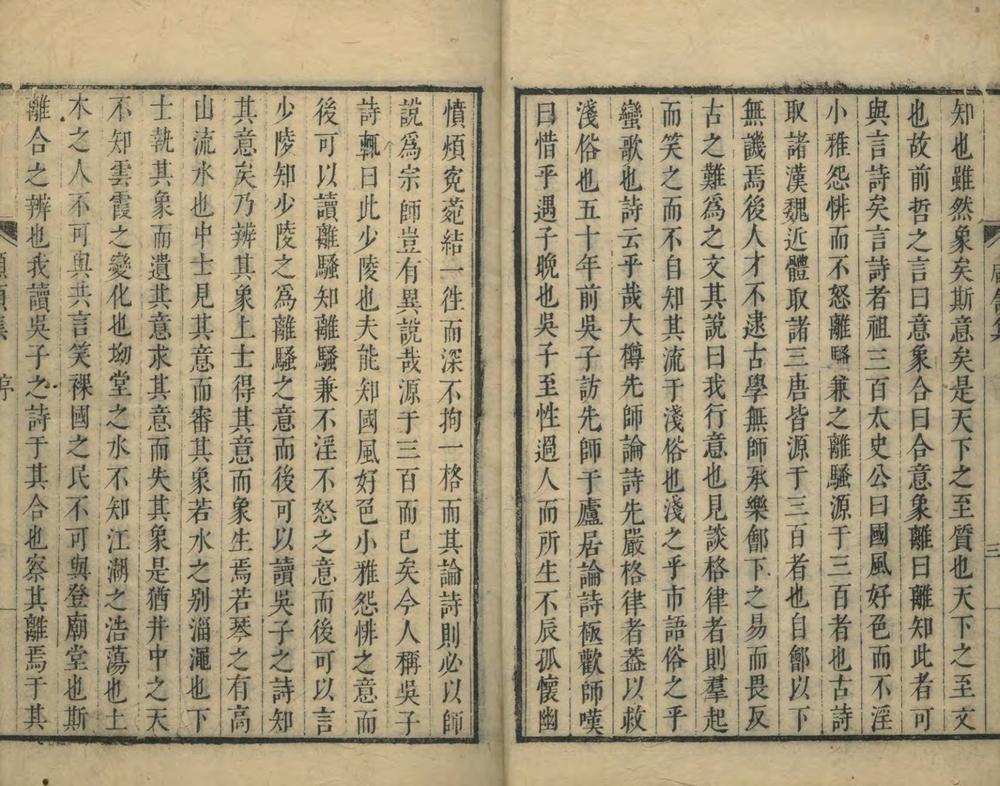 知也雖然象矣斯意矣是天下之至質也天下之至文
也故前哲之言曰意象合曰合意象離曰離知此者可
與言詩矣言詩者祖三百太史公曰國風好色而不淫
小雅怨悱而不怒離騷兼之離騷源于三百者也古詩
取諸漢魏近體取諸三唐皆源于三百者也自鄶以下
無譏焉後人才不逮古學無師承樂鄶下之易而畏反
古之難為之文其說曰我行意也見談格律者則羣起
而笑之而不自知其流于淺俗也淺之乎市語俗之乎
蠻歌也詩云乎哉大樽先師論詩先嚴格律者葢以救
淺俗也五十年前吳子訪先師于廬居論詩極歡師嘆
曰惜乎遇子晚也吳子至性過人而所生不辰孤懷幽
憤煩寃菀結一徃而深不拘一格而其論詩則必以師
說爲宗師豈有異說哉源于三百而已矣今人稱吳子
詩輒曰此少陵也夫能知國風好色小雅怨悱之意而
後可以讀離騷知離騷兼不淫不怒之意而後可以言
少陵知少陵之爲離騷之意而後可以讀吳子之詩知
其意矣乃辨其象上士得其意而象生焉若琴之有高
山流水也中士見其意而審其象若水之别淄澠也下
士執其象而遺其意求其意而失其象是猶井中之天
不知雲霞之變化也坳堂之水不知江湖之浩蕩也土
木之人不可與共言笑裸國之民不可與登廟堂也斯
離合之辨也我讀吳子之詩于其合也察其離焉于其
序